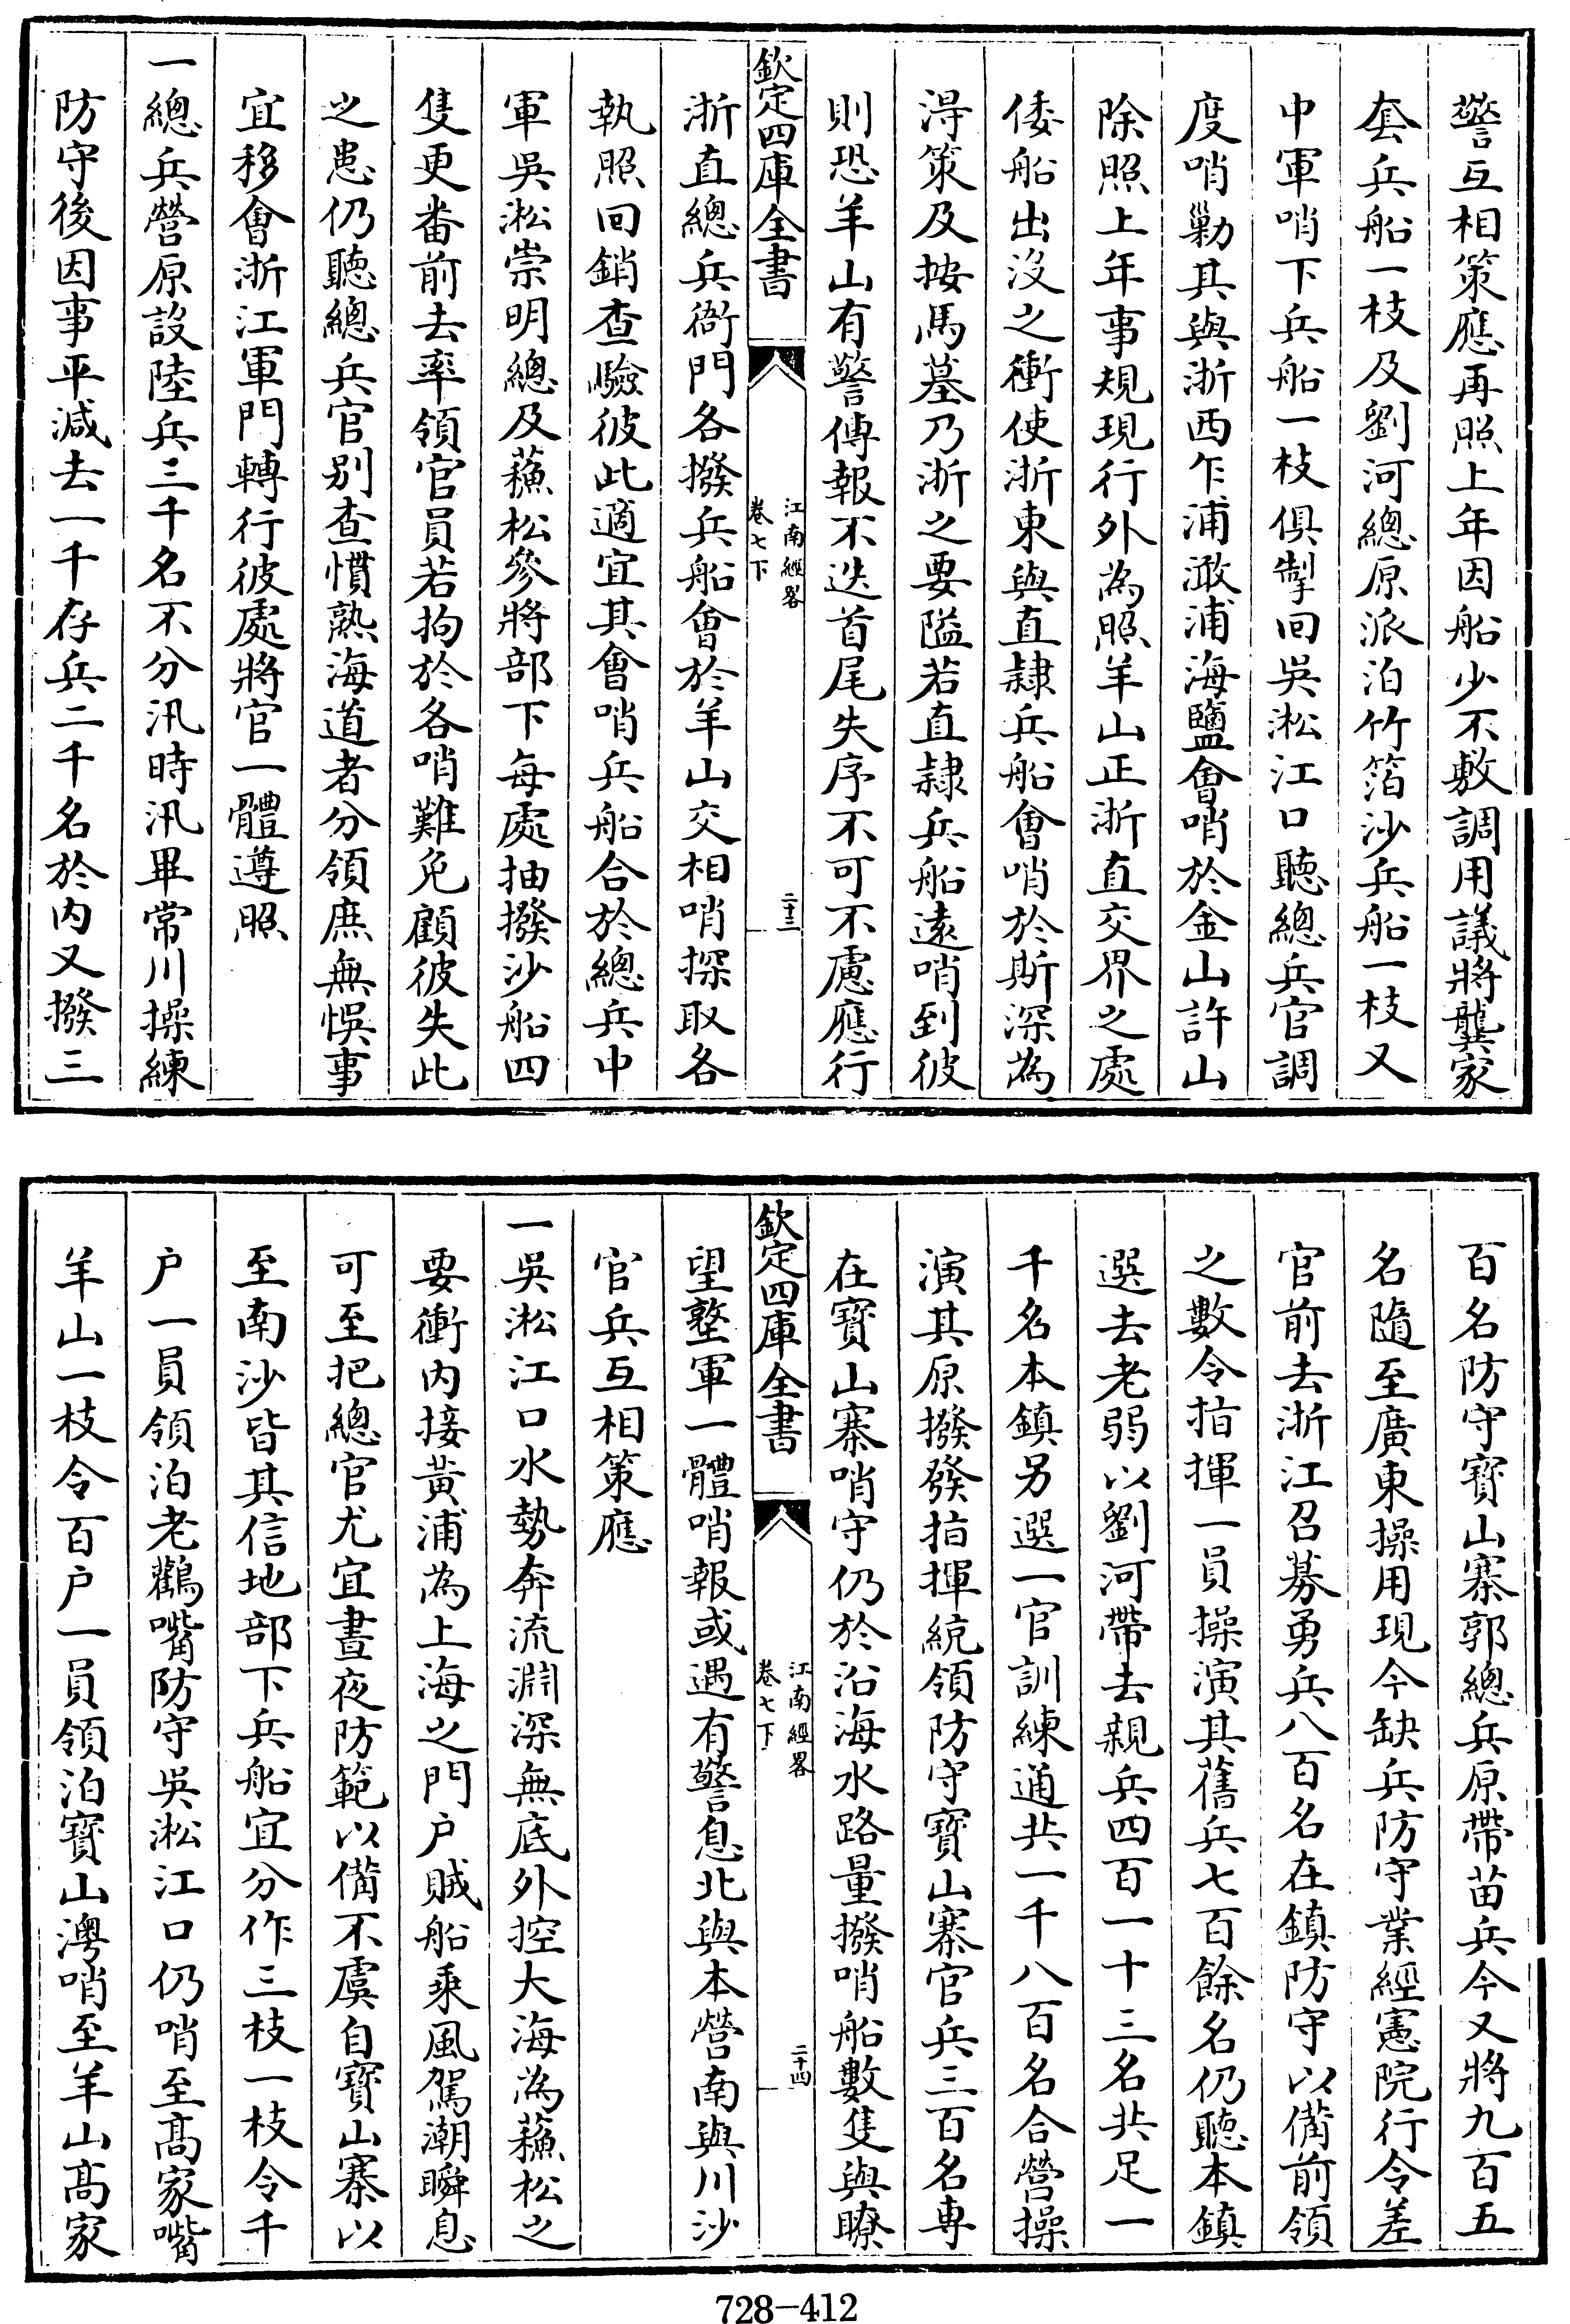 警互相策應再照上年因船少不敷調用議將龔家
套兵船一枝及劉河總原派泊竹箔沙兵船一枝又
中軍哨下兵船一枝俱掣回吳淞江口聽總兵官調
度哨勦其與浙西乍浦澉浦海鹽會哨於金山許山
除照上年事規現行外為照羊山正浙直交界之處
倭船出沒之衝使浙東與直隸兵船會哨於斯深為
得策及按馬墓乃浙之要隘若直隸兵船遠哨到彼
則恐羊山有警傳報不迭首尾失序不可不慮應行
欽定四庫全書
江南經畧
卷七下
二十三
浙直總兵衙門各撥兵船會於羊山交相哨探取各
執照回銷查驗彼此適宜其會哨兵船合於總兵中
軍吳淞崇明總及蘓松參將部下每處抽撥沙船四
隻更番前去率領官員若拘於各哨難免顧彼失此
之患仍聽總兵官别查慣熟海道者分領庶無悞事
宜移會浙江軍門轉行彼處將官一體遵照
一總兵營原設陸兵三千名不分汛時汛畢常川操練
防守後因事平減去一千存兵二千名於內又撥三
百名防守寶山寨郭總兵原帶苗兵今又將九百五
名隨至廣東操用現今缺兵防守業經憲院行令差
官前去浙江召募勇兵八百名在鎮防守以備前領
之數令指揮一員操演其舊兵七百餘名仍聽本鎮
選去老弱以劉河帶去親兵四百一十三名共足一
千名本鎮另選一官訓練通共一千八百名合營操
演其原撥發指揮統領防守寶山寨官兵三百名專
在寶山寨哨守仍於沿海水路量撥哨船數隻與瞭
欽定四庫全書
江南經畧
卷七下
二十四
望墪軍一體哨報或遇有警息北與本營南與川沙
官兵互相策應
一吳淞江口水勢奔流淵深無底外控大海為蘓松之
要衝內接黃浦為上海之門户賊船乘風駕潮瞬息
可至把總官尤宜晝夜防範以備不虞自寶山寨以
至南沙皆其信地部下兵船宜分作三枝一枝令千
户一員領泊老鸛嘴防守吳淞江口仍哨至髙家嘴
羊山一枝令百户一員領泊寶山灣哨至羊山髙家
728-412